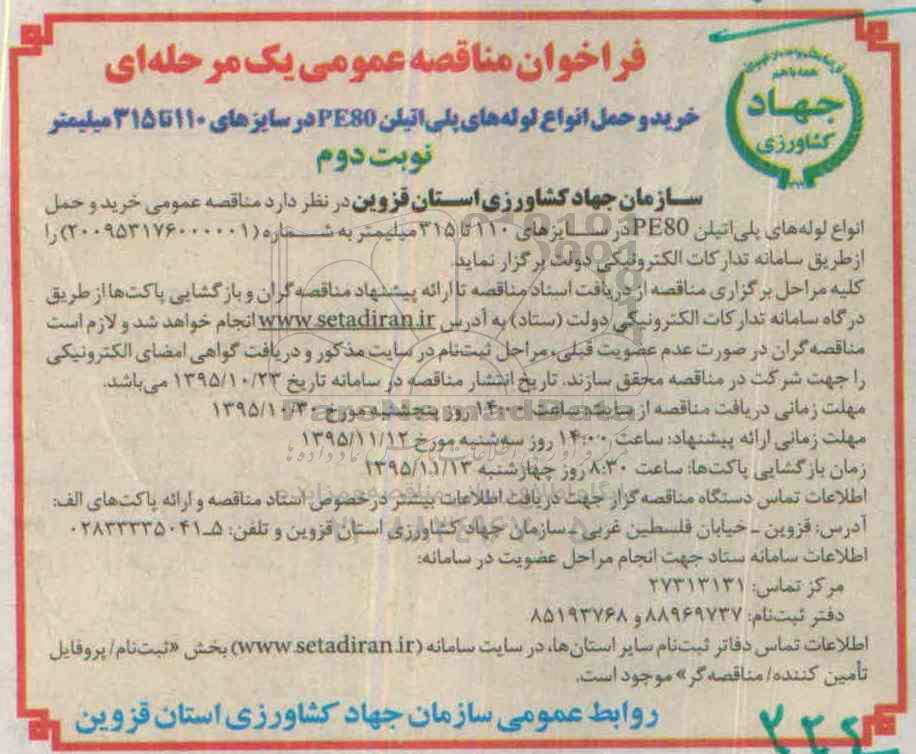 فراخوان مناقصه عمومی یک مرحله‌ای
خرید و حمل انواع لوله‌های پلی اتیلن PE80 در سایزهای ۱۱۰ تا ۳۱۵ میلیمتر
نوبت دوم
همه با هم
جهاد
کشاورزی
سازمان جهاد کشاورزی استان قزوین در نظر دارد مناقصه عمومی خرید و حمل
انواع لوله‌های پلی‌اتیلن PE80 در سایزهای ۱۱۰ تا ۳۱۵ میلیمتر به شماره (۲۰۰۹۵۳۱۷۶۰۰۰۰۰۱) را
از طریق سامانه تدارکات الکترونیکی دولت برگزار نماید.
کلیه مراحل برگزاری مناقصه از دریافت اسناد مناقصه تا ارائه پیشنهاد مناقصه‌گران و بازگشایی پاکت‌ها از طریق
درگاه سامانه تدارکات الکترونیکی دولت (ستاد) به آدرس www.setadiran.ir انجام خواهد شد و لازم است
مناقصه‌گران در صورت عدم عضویت قبلی، مراحل ثبت‌نام در سایت مذکور و دریافت گواهی امضای الکترونیکی
را جهت شرکت در مناقصه محقق سازند. تاریخ انتشار مناقصه در سامانه تاریخ ۱۳۹۵/۱۰/۲۳ می‌باشد.
مهلت زمانی دریافت مناقصه از سایت: ساعت ۱۴:۰۰ روز پنجشنبه مورخ ۱۳۹۵/۱۰/۳۰
مهلت زمانی ارائه پیشنهاد: ساعت ۱۴:۰۰ روز سه‌شنبه مورخ ۱۳۹۵/۱۱/۱۲
زمان بازگشایی پاکت‌ها: ساعت ۸:۳۰ روز چهارشنبه ۱۳۹۵/۱۱/۱۳
اطلاعات تماس دستگاه مناقصه‌گزار جهت دریافت اطلاعات بیشتر در خصوص اسناد مناقصه و ارائه پاکت‌های الف:
آدرس: قزوین ـ خیابان فلسطین غربی ـ سازمان جهاد کشاورزی استان قزوین و تلفن: ۵ـ۰۲۸۳۳۳۳۵۰۴۱
اطلاعات سامانه ستاد جهت انجام مراحل عضویت در سامانه:
مرکز تماس: ۲۷۳۱۳۱۳۱
دفتر ثبت‌نام: ۸۸۹۶۹۷۳۷ و ۸۵۱۹۳۷۶۸
اطلاعات تماس دفاتر ثبت‌نام سایر استان‌ها، در سایت سامانه (www.setadiran.ir) بخش «ثبت‌نام/ پروفایل
تأمین کننده/ مناقصه‌گر» موجود است.
روابط عمومی سازمان جهاد کشاورزی استان قزوین